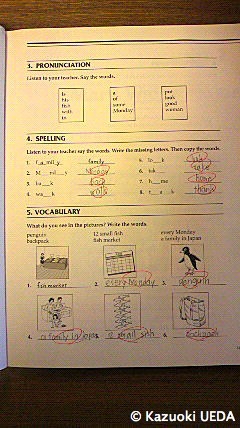 3. PRONUNCIATION
Listen to your teacher. Say the words.
is
his
fish
with
in
a
of
some
Monday
put
look
good
woman
4. SPELLING
Listen to your teacher say the words. Write the missing letters. Then copy the words.
1. f a mil y family
5. lo__k
2. M__nd__y
6. t__k__
3. ba__k
7. h__me home
4. wa__k
8. t__a__k thank
5. VOCABULARY
What do you see in the pictures? Write the words.
penguin
backpack
12 small fish
fish market
every Monday
a family in Japan
1. fish market
2. every Monday
3. penguin
4. a family in Japan
5. small fish
6. backpack
© Kazuoki UEDA